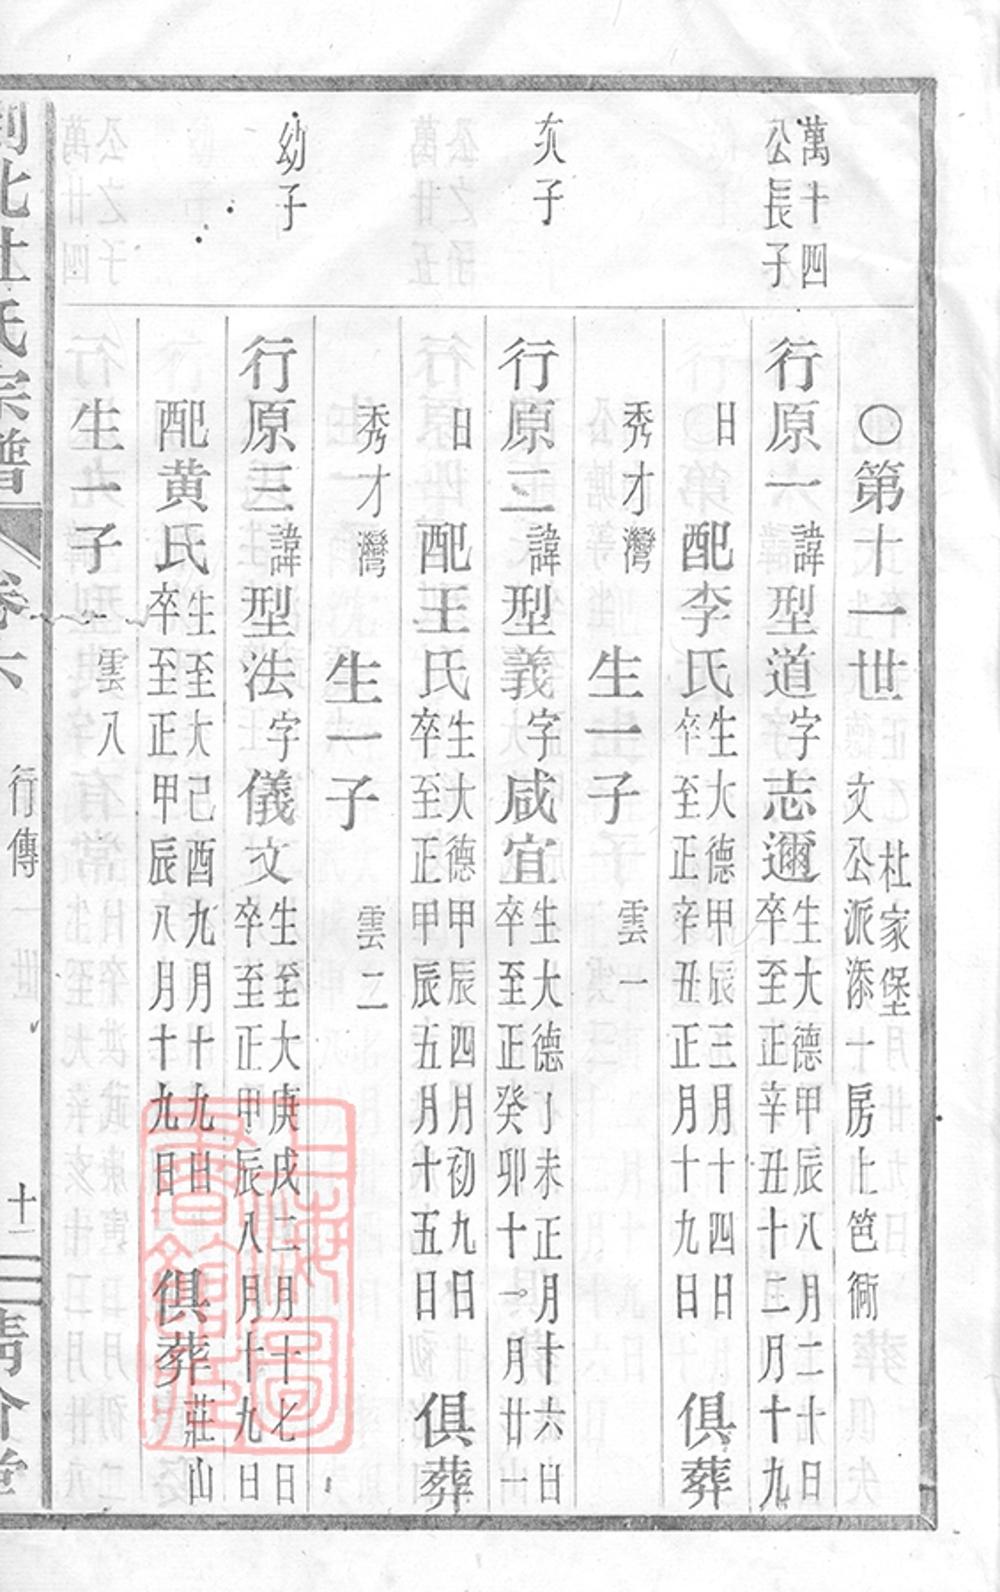 ○第十一世 文公派添十房上笆衕 杜家堡
萬十四公長子
行原一諱型道字志邇生大德甲辰八月二十日卒至正辛丑十二月十九
日 配李氏生大德甲辰三月十四日卒至正辛丑正月十九日 俱葬
秀才灣 生一子 雲一
次子
行原二諱型義字咸宜生大德丁未正月十六日卒至正癸卯十一月廿一
日 配王氏生大德甲辰四月初九日卒至正甲辰五月十五日 俱葬
秀才灣 生一子 雲二
幼子
行原三諱型法字儀文生至大庚戌二月十七日卒至正甲辰八月十九日
配黃氏生至大己酉九月十九日卒至正甲辰八月十九日 俱葬莊山
生一子 雲八
北杜氏宗譜 卷六 行傳 十一世 十二
上海圖書館藏